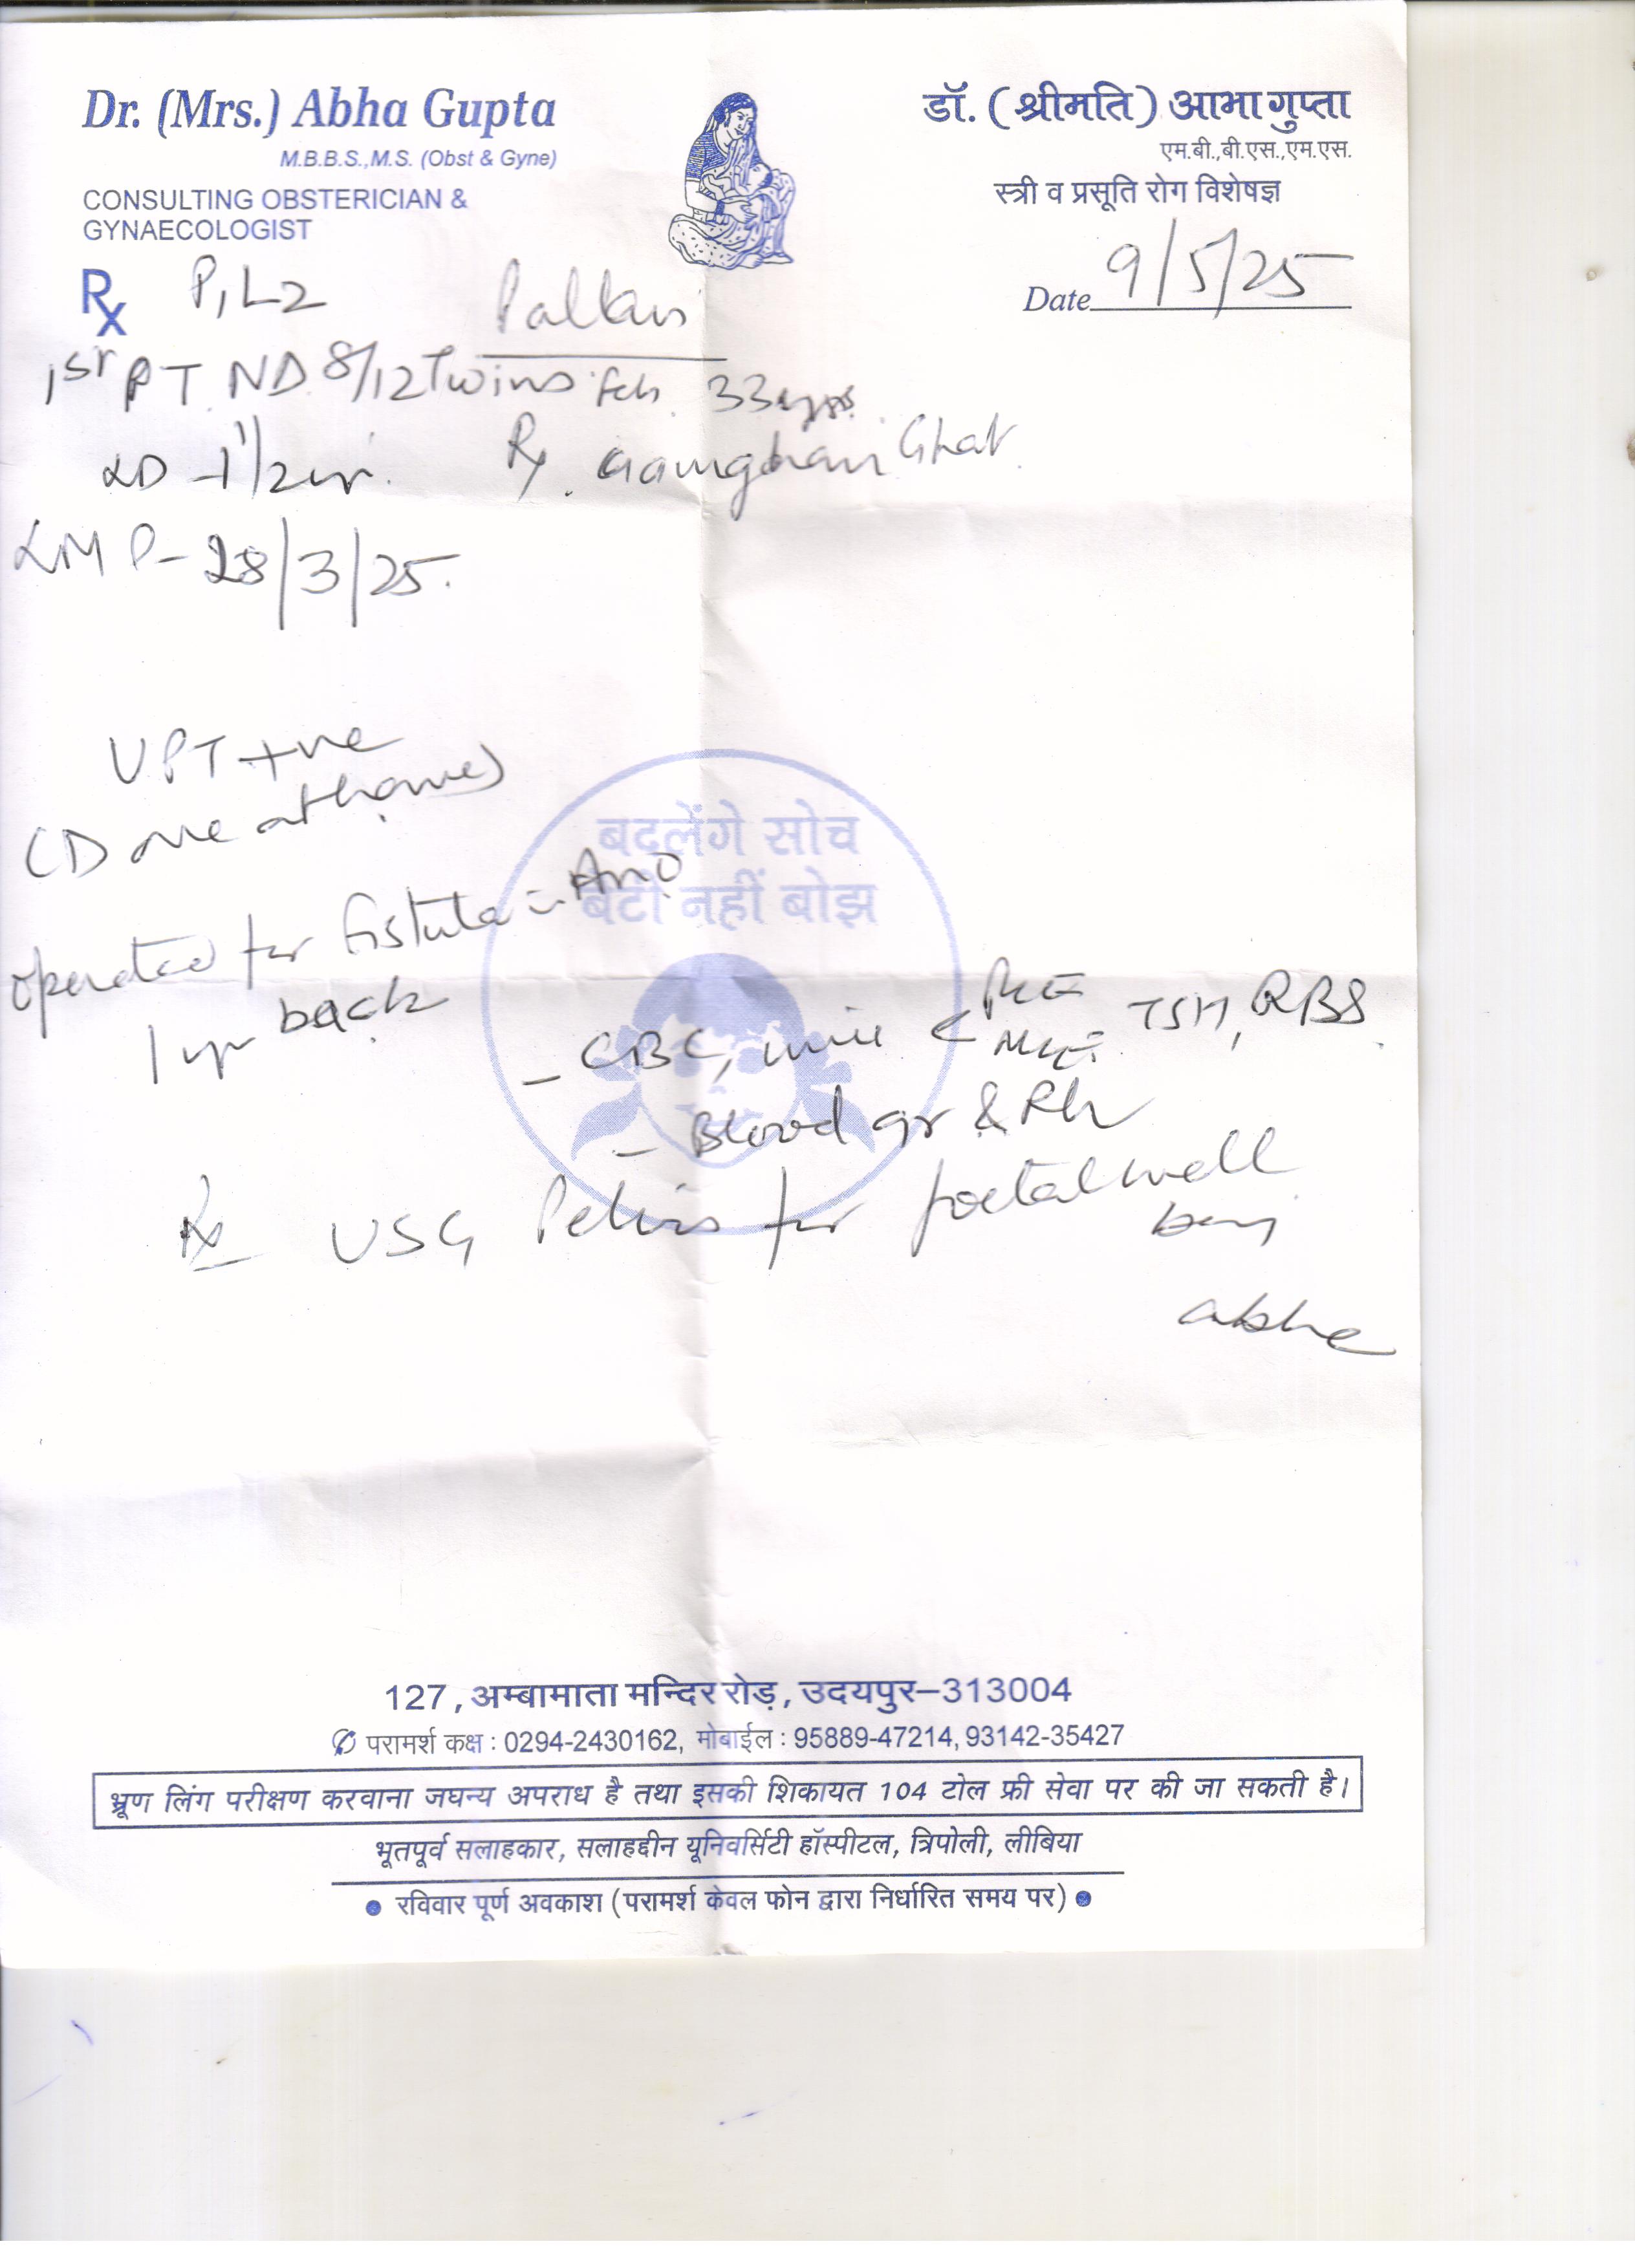 Dr. (Mrs.) Abha Gupta
M.B.B.S.,M.S. (Obst & Gyne)
CONSULTING OBSTERICIAN &
GYNAECOLOGIST
डॉ. (श्रीमति) आभा गुप्ता
एम.बी.,बी.एस.,एम.एस.
स्त्री व प्रसूति रोग विशेषज्ञ
Date 9/5/25
Rx P1L2
1st PT ND 8/12 Twins 33yrs
LD - 1 1/2 yr.
Ghat
LMP - 28/3/25.
UPT +ve
(Done at home)
operated for fistula in Ano
1 yr back
बदलेंगे सोच
बेटी नहीं बोझ
- CBC, TSH, RBS
- Blood gr & Rh
Rx USG Pelvis for foetal well
being
127, अम्बामाता मन्दिर रोड़, उदयपुर–313004
परामर्श कक्ष : 0294-2430162, मोबाईल : 95889-47214, 93142-35427
भ्रूण लिंग परीक्षण करवाना जघन्य अपराध है तथा इसकी शिकायत 104 टोल फ्री सेवा पर की जा सकती है।
भूतपूर्व सलाहकार, सलाहद्दीन यूनिवर्सिटी हॉस्पीटल, त्रिपोली, लीबिया
• रविवार पूर्ण अवकाश (परामर्श केवल फोन द्वारा निर्धारित समय पर) •